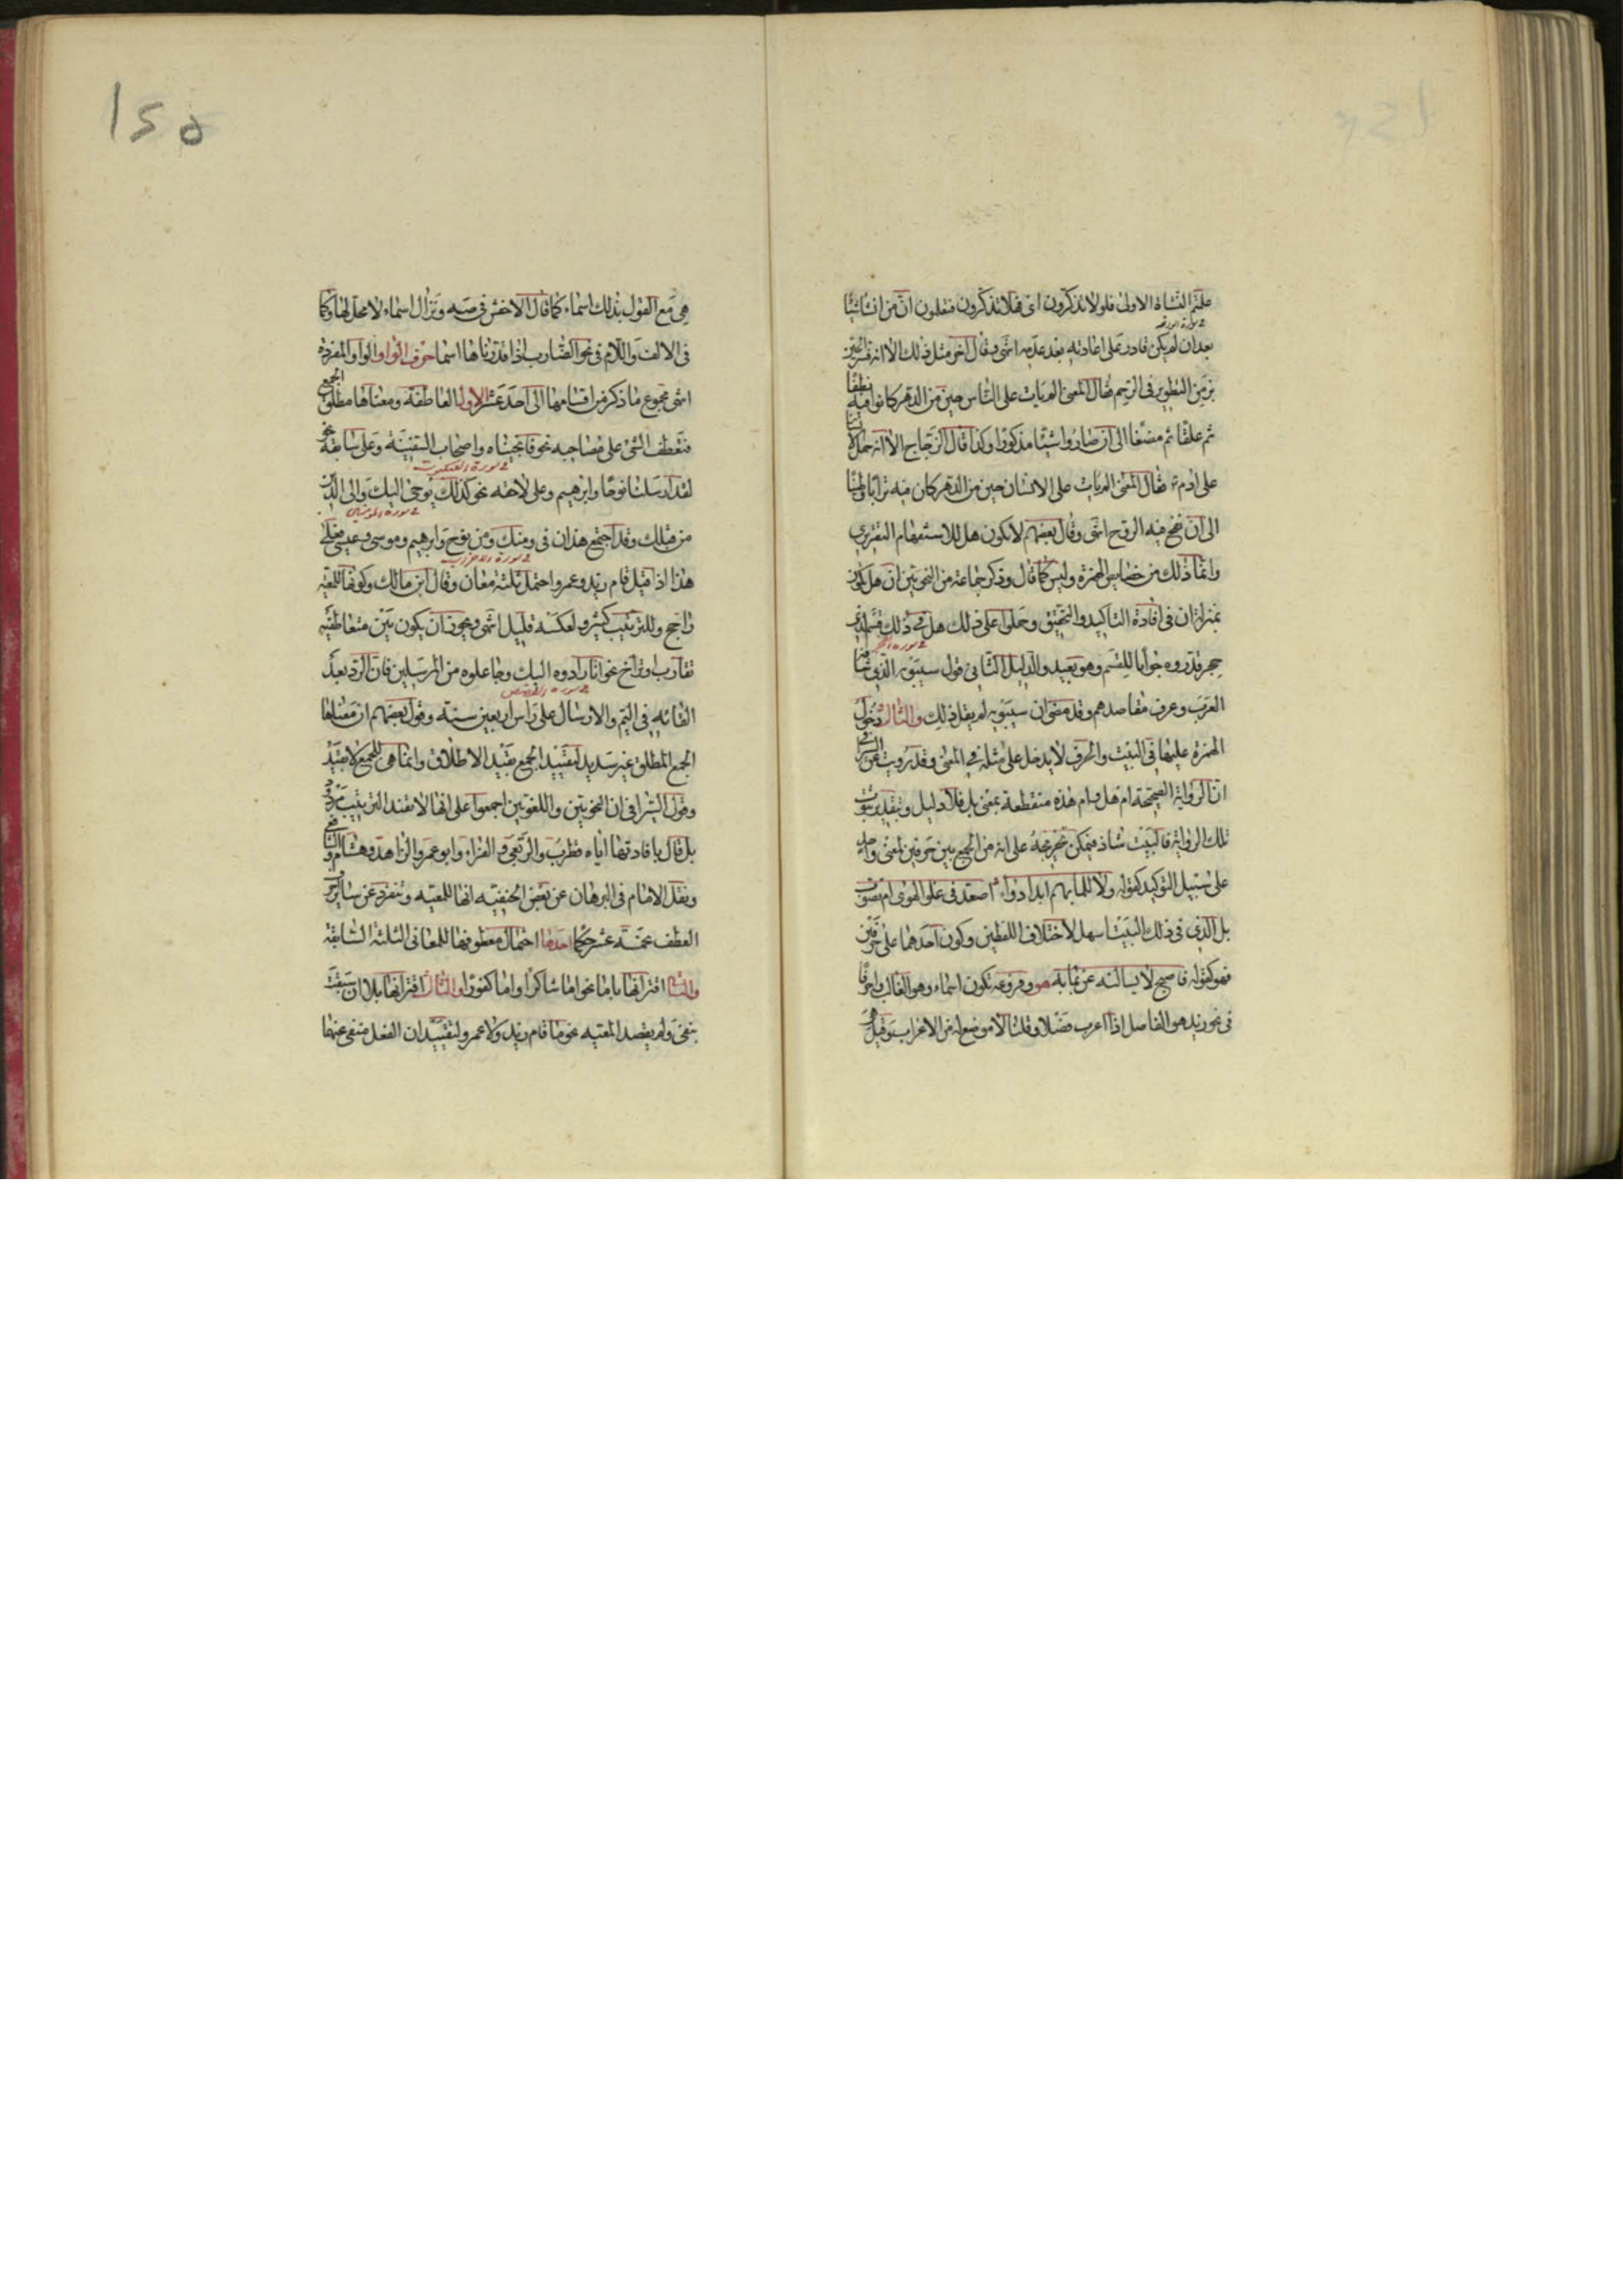 علمتم النشاة الاولى فلولا تذكرون اى فهلا تذكرون فتعلمون ان من انشا شيئا
فى سورة الواقعة
بعد ان لم يكن قادر على اعادته بعد عدمه انتهى وقال اخر مثل ذلك الا انه فسر الحين
بزمن التطوير فى الرحم فقال المعنى الم يات على الناس حين من الدهر كانوا فيه نطفا
ثم علقا ثم مضغا الى ان صاروا شيئا مذكورا وكذا قال الزجاج الا انه حمل الانسان
على ادم فقال المعنى الم يات على الانسان حين من الدهر كان فيه ترابا وطينا
الى ان نفخ فيه الروح انتهى وقال بعضهم لا تكون هل للاستفهام التقريرى
وانما ذلك من خصايص الهمزة وليس كما قال وذكر جماعة من النحويين ان هل تكون
بمنزلة ان فى افادة التاكيد والتحقيق وحملوا على ذلك هل فى ذلك قسم لذى
فى سورة الفجر
حجر قدروه جوابا للقسم وهو بعيد والدليل الثانى قول سيبويه الذى شافه
العرب وعرف مقاصدهم وقد مضى ان سيبويه لم يقل ذلك والثالث دخول
الهمزة عليها فى البيت والحرف لا يدخل على مثله فى المعنى وقد رويت عن السيرافى
ان الرواية الصحيحة ام هل وام هذه منقطعة بمعنى بل فلا دليل وبتقدير ثبوت
تلك الرواية فالبيت شاذ فيمكن تخريجه على انه من الجمع بين حرفين لمعنى واحد
على سبيل التوكيد كقوله ولا للما بهم ابدا دواء اصعد فى علو الهوى ام تصوب
بل الذى فى ذلك البيت اسهل لاختلاف اللفظين وكون احدهما على حرفين
فهو كقوله فاصبح لا يسالنه عن بما به هو وفروعه تكون اسماء وهو الغالب واحرفا
فى نحو زيد هو الفاصل اذا اعرب فصلا وقلنا لا موضع له من الاعراب وقيل هى
١٢٥
هى مع القول بذلك اسماء كما قال الاخفش فى صه ونزال اسماء لا محل لها وكما
فى الالف واللام فى نحو الضارب اذا قدرناها اسما حرف الواو الواو المفردة
انتهى مجموع ما ذكر من اقسامها الى احد عشر الاول العاطفة ومعناها مطلق الجمع
فتعطف الشئ على مصاحبه نحو فانجيناه واصحاب السفينة وعلى سابقه نحو
فى سورة العنكبوت
لقد ارسلنا نوحا وابرهيم وعلى لاحقه نحو كذلك يوحى اليك والى الذين
من قبلك وقد اجتمع هذان فى ومنك ومن نوح وابرهيم وموسى وعيسى فعلى
فى سورة الاحزاب
هذا اذا قيل قام زيد وعمرو احتمل ثلثة معان وقال ابن مالك وكونها للمعية
راجح وللترتيب كثير ولعكسه قليل انتهى ويجوز ان يكون بين متعاطفيه
تقارب او تراخ نحو انا رادوه اليك وجاعلوه من المرسلين فان الرد بعد
فى سورة القصص
القائه فى اليم والارسال على راس اربعين سنة وقول بعضهم ان معناها
الجمع المطلق غير سديد لتقييد الجمع بقيد الاطلاق وانما هى للجمع لا بقيد
وقول السيرافى ان النحويين واللغويين اجمعوا على انها لا تفيد الترتيب مردود
بل قال بافادتها اياه قطرب والربعى والفراء وابو عمر والزاهد وهشام والشافعى
ونقل الامام فى البرهان عن بعض الحنفية انها للمعية وتنفرد عن ساير احرف
العطف بخمسة عشر حكما احدها احتمال معطوفها للمعانى الثلثة السابقة
والثانى اقترانها باما نحو اما شاكرا واما كفورا والثالث اقترانها بلا ان سبقت
بنفى ولم يقصد المعية نحو ما قام زيد ولا عمرو لتفيد ان الفعل منفى عنهما